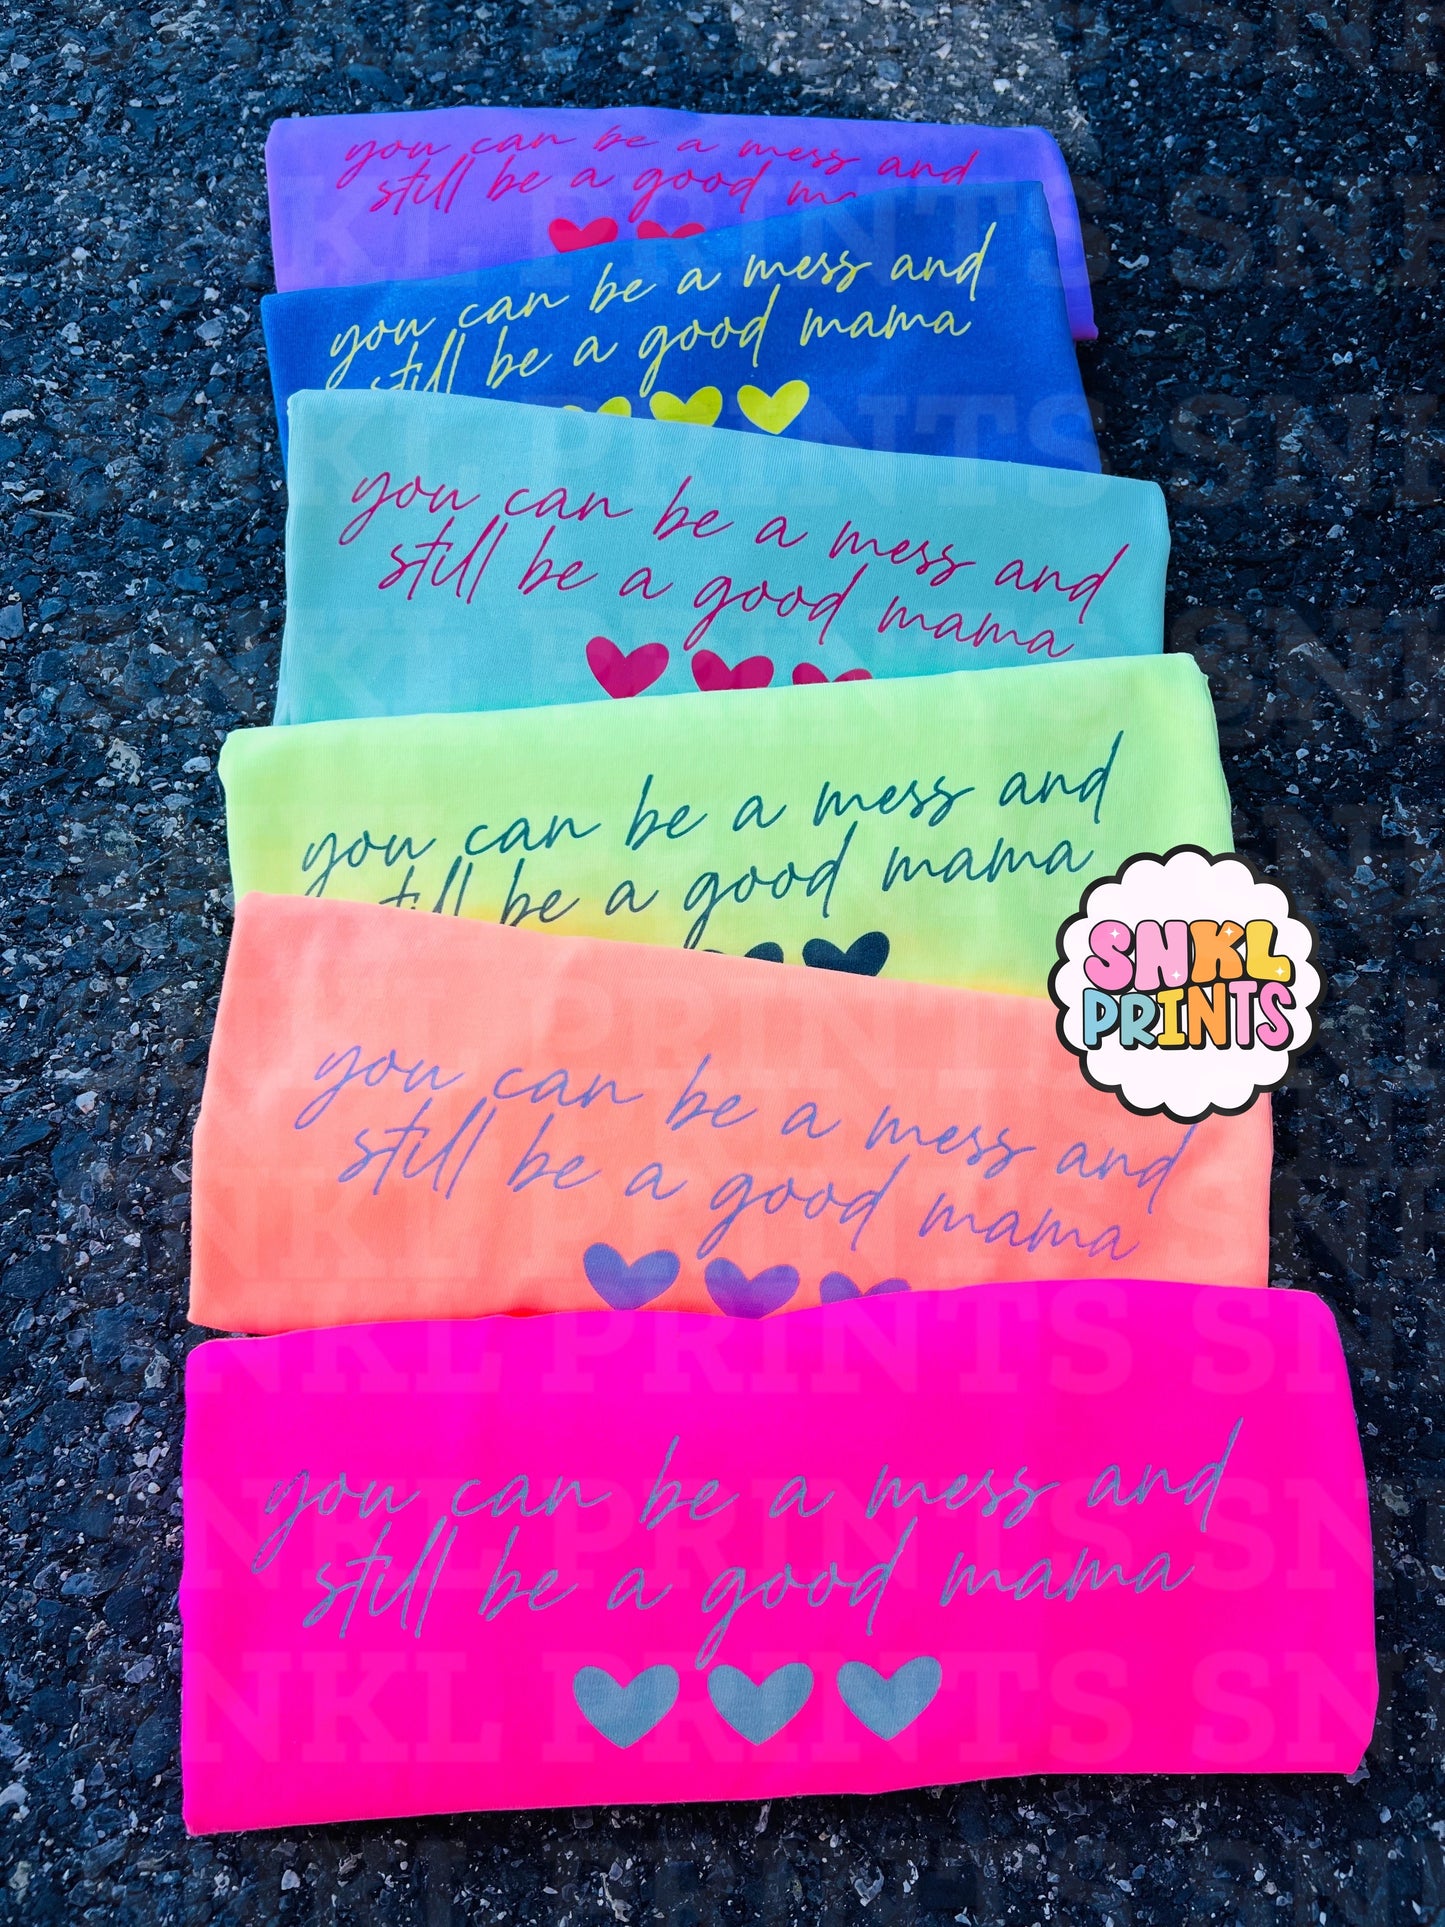 you can be a mess and
still be a good
you can be a mess and
still be a good mama
you can be a mess and
still be a good mama
you can be a mess and
still be a good mama
SNKL
PRINTS
you can be a mess and
still be a good mama
you can be a mess and
still be a good mama
SNKL PRINTS